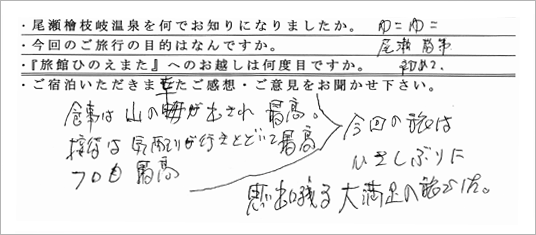 ・尾瀬檜枝岐温泉を何でお知りになりましたか。 ゆこゆこ
・今回のご旅行の目的はなんですか。 尾瀬
・『旅館ひのえまた』へのお越しは何度目ですか。 初めて。
・ご宿泊いただきましたご感想・ご意見をお聞かせ下さい。
食事は山の幸が出され 最高。
接待は気配りが行きとどいて最高
フロも 最高
今回の旅は
ひさしぶりに
思い出残る大満足の旅でした。